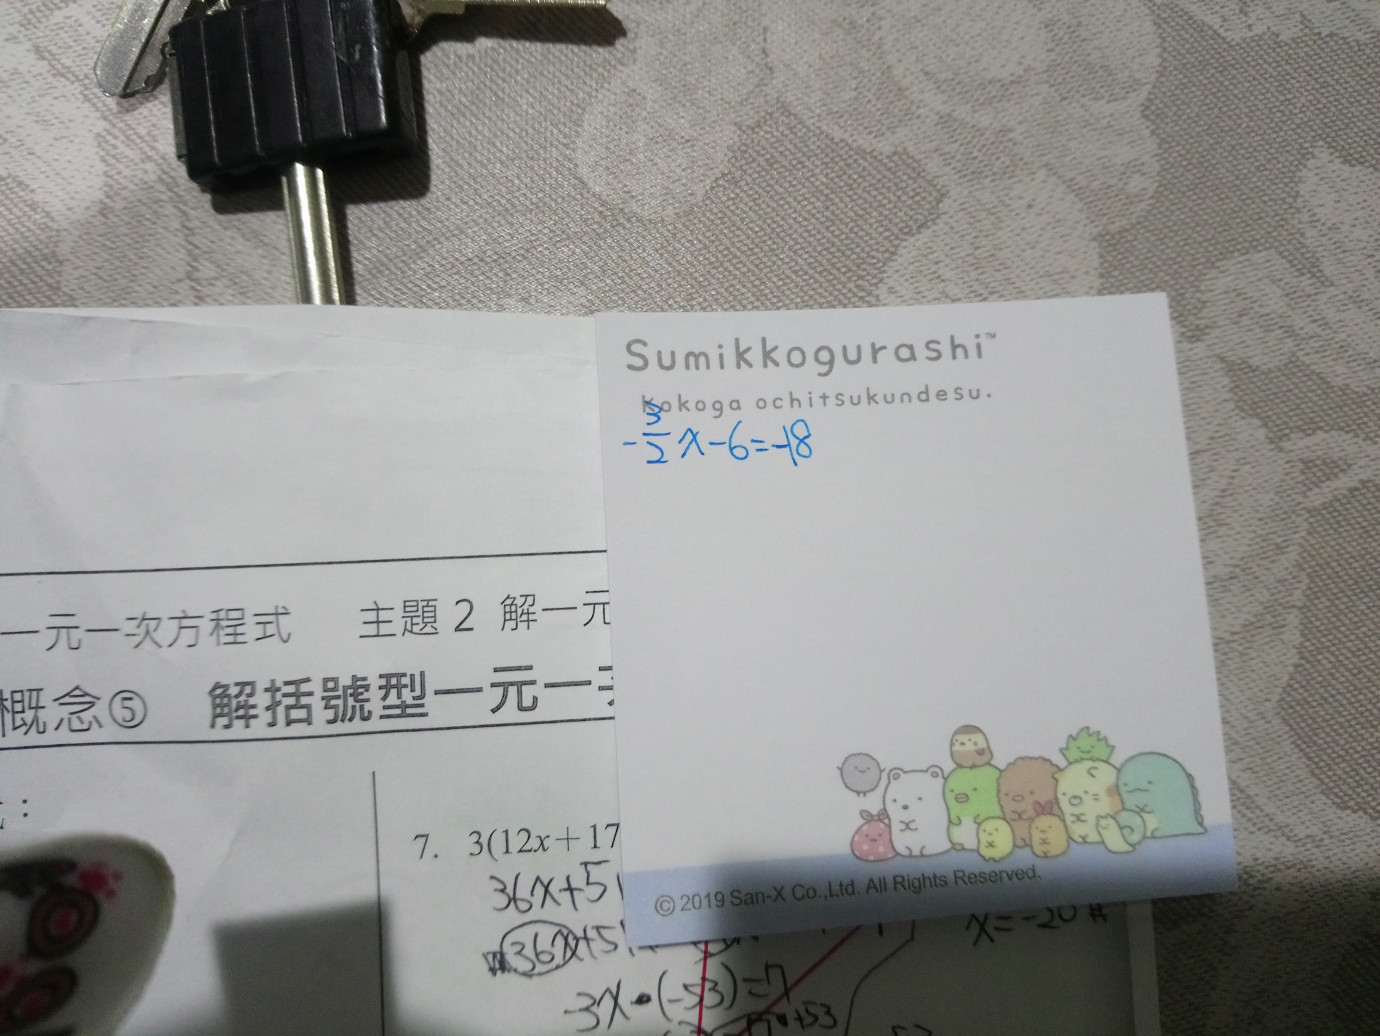 Sumikkogurashi™
kokoga ochitsukundesu.
-3/2 x-6=-18
一元一次方程式 主題 2 解一元
概念⑤ 解括號型一元一
：
7. 3(12x＋17
36x+51
36x+51
©2019 San-X Co.,Ltd. All Rights Reserved.
x=-20
-3x·(-53)=7
+53